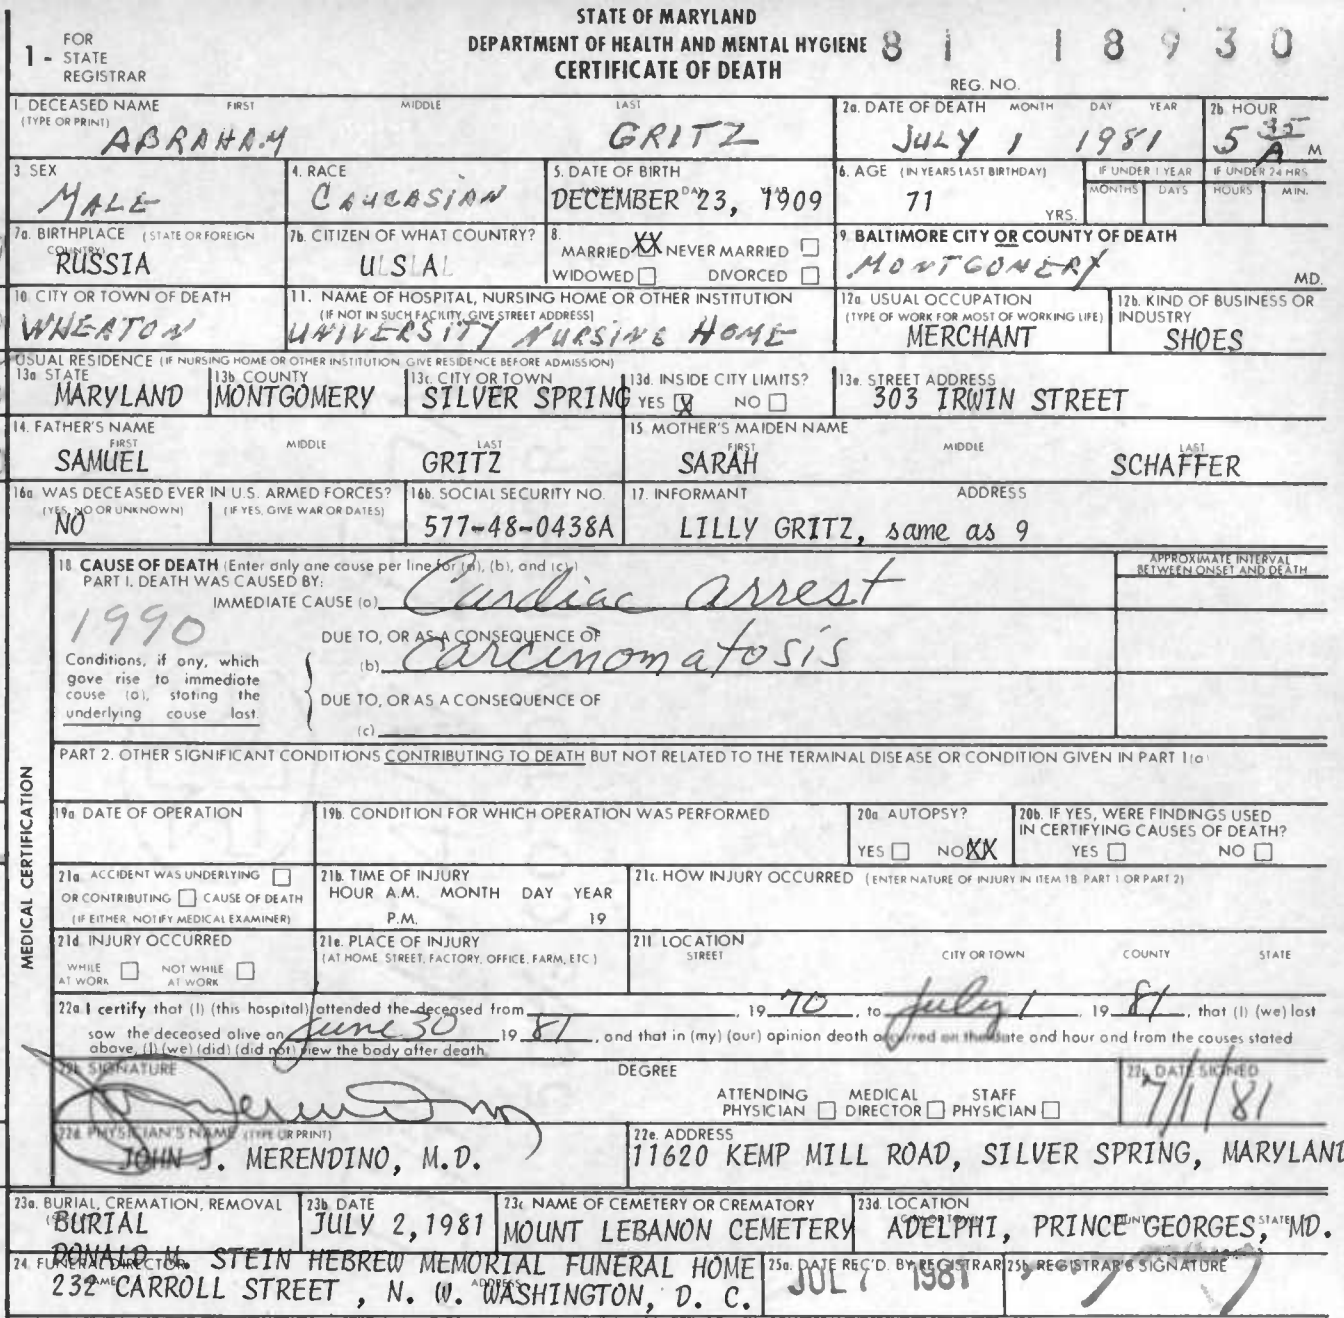 STATE OF MARYLAND
DEPARTMENT OF HEALTH AND MENTAL HYGIENE 81 18930
CERTIFICATE OF DEATH
REG. NO.
1 - FOR STATE REGISTRAR
1. DECEASED NAME FIRST MIDDLE LAST
(TYPE OR PRINT)
ABRAHAM GRITZ
2a. DATE OF DEATH MONTH DAY YEAR
JULY 1 1981
2b. HOUR
5 35 A M
3. SEX
MALE
4. RACE
CAUCASIAN
5. DATE OF BIRTH
DECEMBER 23, 1909
6. AGE (IN YEARS LAST BIRTHDAY)
71 YRS.
IF UNDER 1 YEAR
MONTHS DAYS
IF UNDER 24 HRS
HOURS MIN.
7a. BIRTHPLACE (STATE OR FOREIGN COUNTRY)
RUSSIA
7b. CITIZEN OF WHAT COUNTRY?
U S A
8.
MARRIED XX NEVER MARRIED
WIDOWED DIVORCED
9. BALTIMORE CITY OR COUNTY OF DEATH
MONTGOMERY MD.
10. CITY OR TOWN OF DEATH
WHEATON
11. NAME OF HOSPITAL, NURSING HOME OR OTHER INSTITUTION
(IF NOT IN SUCH FACILITY, GIVE STREET ADDRESS)
UNIVERSITY NURSING HOME
12a. USUAL OCCUPATION
(TYPE OF WORK FOR MOST OF WORKING LIFE)
MERCHANT
12b. KIND OF BUSINESS OR INDUSTRY
SHOES
USUAL RESIDENCE (IF NURSING HOME OR OTHER INSTITUTION GIVE RESIDENCE BEFORE ADMISSION)
13a STATE
MARYLAND
13b. COUNTY
MONTGOMERY
13c. CITY OR TOWN
SILVER SPRING
13d. INSIDE CITY LIMITS?
YES X NO
13e. STREET ADDRESS
303 IRWIN STREET
14. FATHER'S NAME
FIRST MIDDLE LAST
SAMUEL GRITZ
15 MOTHER'S MAIDEN NAME
FIRST MIDDLE LAST
SARAH SCHAFFER
16a WAS DECEASED EVER IN U.S. ARMED FORCES?
(YES, NO OR UNKNOWN) (IF YES, GIVE WAR OR DATES)
NO
16b. SOCIAL SECURITY NO.
577-48-0438A
17. INFORMANT ADDRESS
LILLY GRITZ, same as 9
MEDICAL CERTIFICATION
18 CAUSE OF DEATH (Enter only one cause per line for (a), (b), and (c).)
PART I. DEATH WAS CAUSED BY:
APPROXIMATE INTERVAL BETWEEN ONSET AND DEATH
IMMEDIATE CAUSE (a) Cardiac arrest
1990
DUE TO, OR AS A CONSEQUENCE OF
(b) Carcinomatosis
Conditions, if any, which
gove rise to immediate
couse (a), stating the
underlying couse last.
DUE TO, OR AS A CONSEQUENCE OF
(c)
PART 2. OTHER SIGNIFICANT CONDITIONS CONTRIBUTING TO DEATH BUT NOT RELATED TO THE TERMINAL DISEASE OR CONDITION GIVEN IN PART 1(a)
19a DATE OF OPERATION
19b. CONDITION FOR WHICH OPERATION WAS PERFORMED
20a AUTOPSY?
YES NO XX
20b. IF YES, WERE FINDINGS USED
IN CERTIFYING CAUSES OF DEATH?
YES NO
21a ACCIDENT WAS UNDERLYING
OR CONTRIBUTING CAUSE OF DEATH
(IF EITHER, NOTIFY MEDICAL EXAMINER)
21b. TIME OF INJURY
HOUR A.M. MONTH DAY YEAR
P.M. 19
21c. HOW INJURY OCCURRED (ENTER NATURE OF INJURY IN ITEM 18 PART 1 OR PART 2)
21d INJURY OCCURRED
WHILE AT WORK NOT WHILE AT WORK
21e. PLACE OF INJURY
(AT HOME, STREET, FACTORY, OFFICE, FARM, ETC)
21f. LOCATION
STREET CITY OR TOWN COUNTY STATE
22a I certify that (I) (this hospital) attended the deceased from 19 70, to July 1, 19 81, that (I) (we) last
sow the deceased alive on June 30 19 81, and that in (my) (our) opinion death occurred on the date and hour and from the causes stated
above, (I) (we) (did) (did not) view the body after death.
22b SIGNATURE DEGREE
ATTENDING PHYSICIAN MEDICAL DIRECTOR STAFF PHYSICIAN
22c DATE SIGNED
7/1/81
22d PHYSICIAN'S NAME (TYPE OR PRINT)
JOHN J. MERENDINO, M.D.
22e. ADDRESS
11620 KEMP MILL ROAD, SILVER SPRING, MARYLAND
23a. BURIAL, CREMATION, REMOVAL
BURIAL
23b. DATE
JULY 2, 1981
23c NAME OF CEMETERY OR CREMATORY
MOUNT LEBANON CEMETERY
23d. LOCATION
ADELPHI, PRINCE GEORGES, MD.
24 FUNERAL DIRECTOR
DONALD M. STEIN HEBREW MEMORIAL FUNERAL HOME
NAME ADDRESS
232 CARROLL STREET, N. W. WASHINGTON, D. C.
25a. DATE REC'D. BY REGISTRAR
JUL 7 1981
25b REGISTRAR'S SIGNATURE